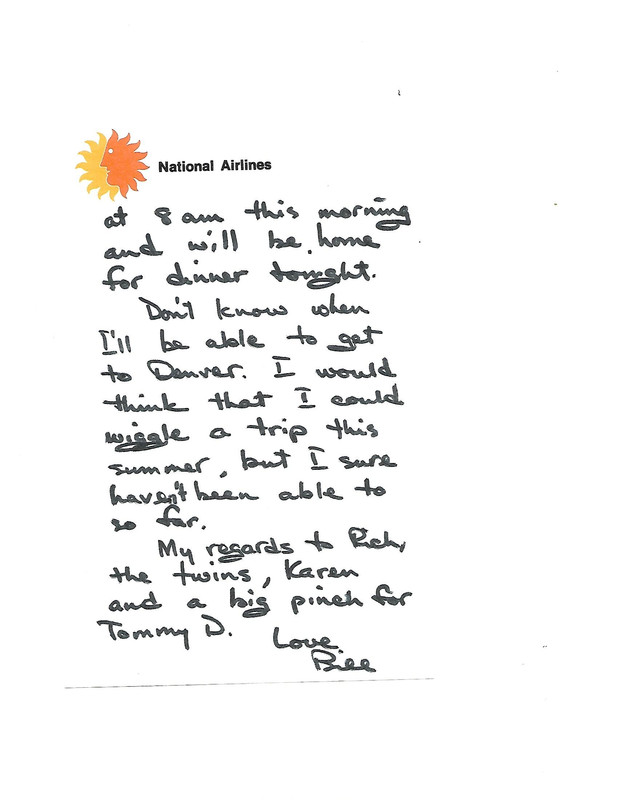 National Airlines
at 8 am this morning
and will be home
for dinner tonight.
Don't know when
I'll be able to get
to Denver. I would
think that I could
wiggle a trip this
summer, but I sure
haven't been able to
so far.
My regards to Rich,
the twins, Karen
and a big pinch for
Tommy D. Love
Bill